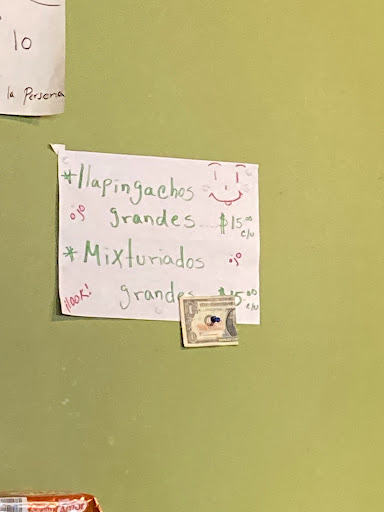 10
la Persona
*llapingachos
grandes $15.00
c/u
*Mixturiados
grandes $15.00
c/u
¡look!
Amor